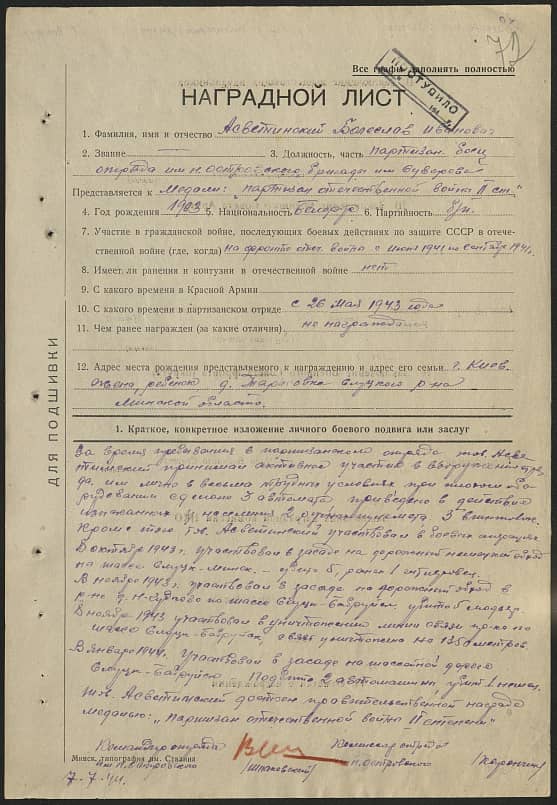 72
Все графы заполнять полностью
ПОСТУПИЛО
194
НАГРАДНОЙ ЛИСТ
1. Фамилия, имя и отчество Асветинский Болеслав Иванович
2. Звание — 3. Должность, часть партизан. боец
отряда им. Н. Островского, бригады им Суворова
Представляется к Медали: "партизан отечественной война II ст."
4. Год рождения 1903 5. Национальность белорус 6. Партийность б/п.
7. Участие в гражданской войне, последующих боевых действиях по защите СССР в отече-
ственной войне (где, когда) на фронте отеч. война с июня 1941 по сентябрь 1941.
8. Имеет ли ранения и контузии в отечественной войне нет
9. С какого времени в Красной Армии
10. С какого времени в партизанском отряде с 26 мая 1943 года
11. Чем ранее награжден (за какие отличия) не награждался
12. Адрес места рождения представляемого к награждению и адрес его семьи г. Киев.
ребенок д. Тарасовка Слуцкого р-на
Минской области.
ДЛЯ ПОДШИВКИ
1. Краткое, конкретное изложение личного боевого подвига или заслуг
За время пребывания в партизанском отряде тов. Асве-
тинский принимал активное участие в вооружении отря-
да, им лично в весьма трудных условиях при плохом обо-
рудовании сделано 3 автомата приведено в действие
изысканных у населения 2 ручных пулемета, 3 винтовки.
Кроме этого тов. Асветинский участвовал в боевых операциях
В октябре 1943 г. участвовал в засаде на дорожной немецкий обход
на шоссе Слуцк-Минск. – убито 5, ранен 1
В ноябре 1943 г. участвовал в засаде на дорожной обход в
р-не д. по шоссе Слуцк-Бобруйск, убито 5
В ноябре 1943 участвовал в уничтожении линии связи
шоссе Слуцк-Бобруйск, уничтожено 1350 метров.
В январе 1944. Участвовал в засаде на шоссейной дороге
Слуцк-Бобруйск. Подбито 2 автомашины убит 1 немец.
Асветинский достоин правительственной награде
медалью: "партизан отечественной война II степени"
Командир отряда
им Н. Островского
/Шпаковский/
Комиссар отряда
Н. Островского
Минск, типография им. Сталина
7.7.44.